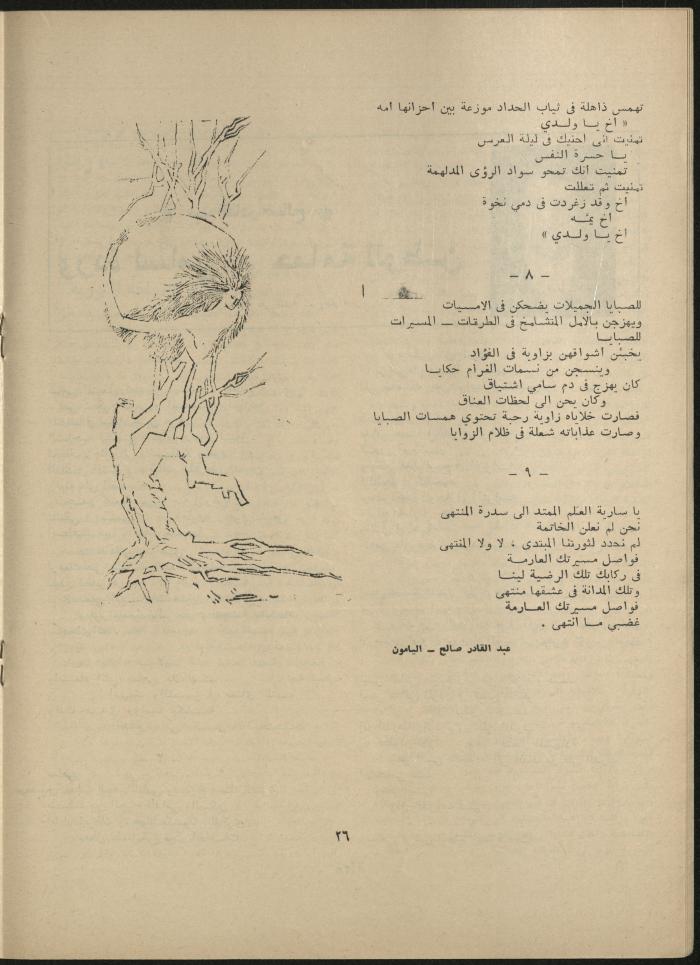 تهمس ذاهلة فى ثياب الحداد موزعة بين احزانها امه
« اخ يــا ولــدي
تمنيت انى احنيك فى ليلة العرس
يــا حسرة النفس
تمنيت انك تمحو سواد الرؤى المدلهمة
تمنيت ثم تعللت
اخ وقد زغردت فى دمي نخوة
اخ يمّــه
اخ يــا ولــدي »
– ٨ –
للصبايا الجميلات يضحكن فى الامسيات
ويهزجن بالامل المتشامخ فى الطرقات – المسيرات
للصبايــا
يخبئن اشواقهن بزاوية فى الفؤاد
وينسجن من نسمات الغرام حكايــا
كان يهزج فى دم سامي اشتياق
وكان يحن الى لحظات العناق
فصارت خلاياه زاوية رحبة تحتوي همسات الصبايا
وصارت عذاباته شعلة فى ظلام الزوايا
– ٩ –
يا سارية العلم الممتد الى سدرة المنتهى
نحن لم نعلن الخاتمة
لم نحدد لثورتنا المبتدى ، لا ولا المنتهى
فواصل مسيرتك العارمــة
فى ركابك تلك الرضية لينــا
وتلك المدانة فى عشقها منتهى
فواصل مسيرتك العــارمة
غضبي مــا انتهى .
عبد القادر صالح – اليامون
٢٦